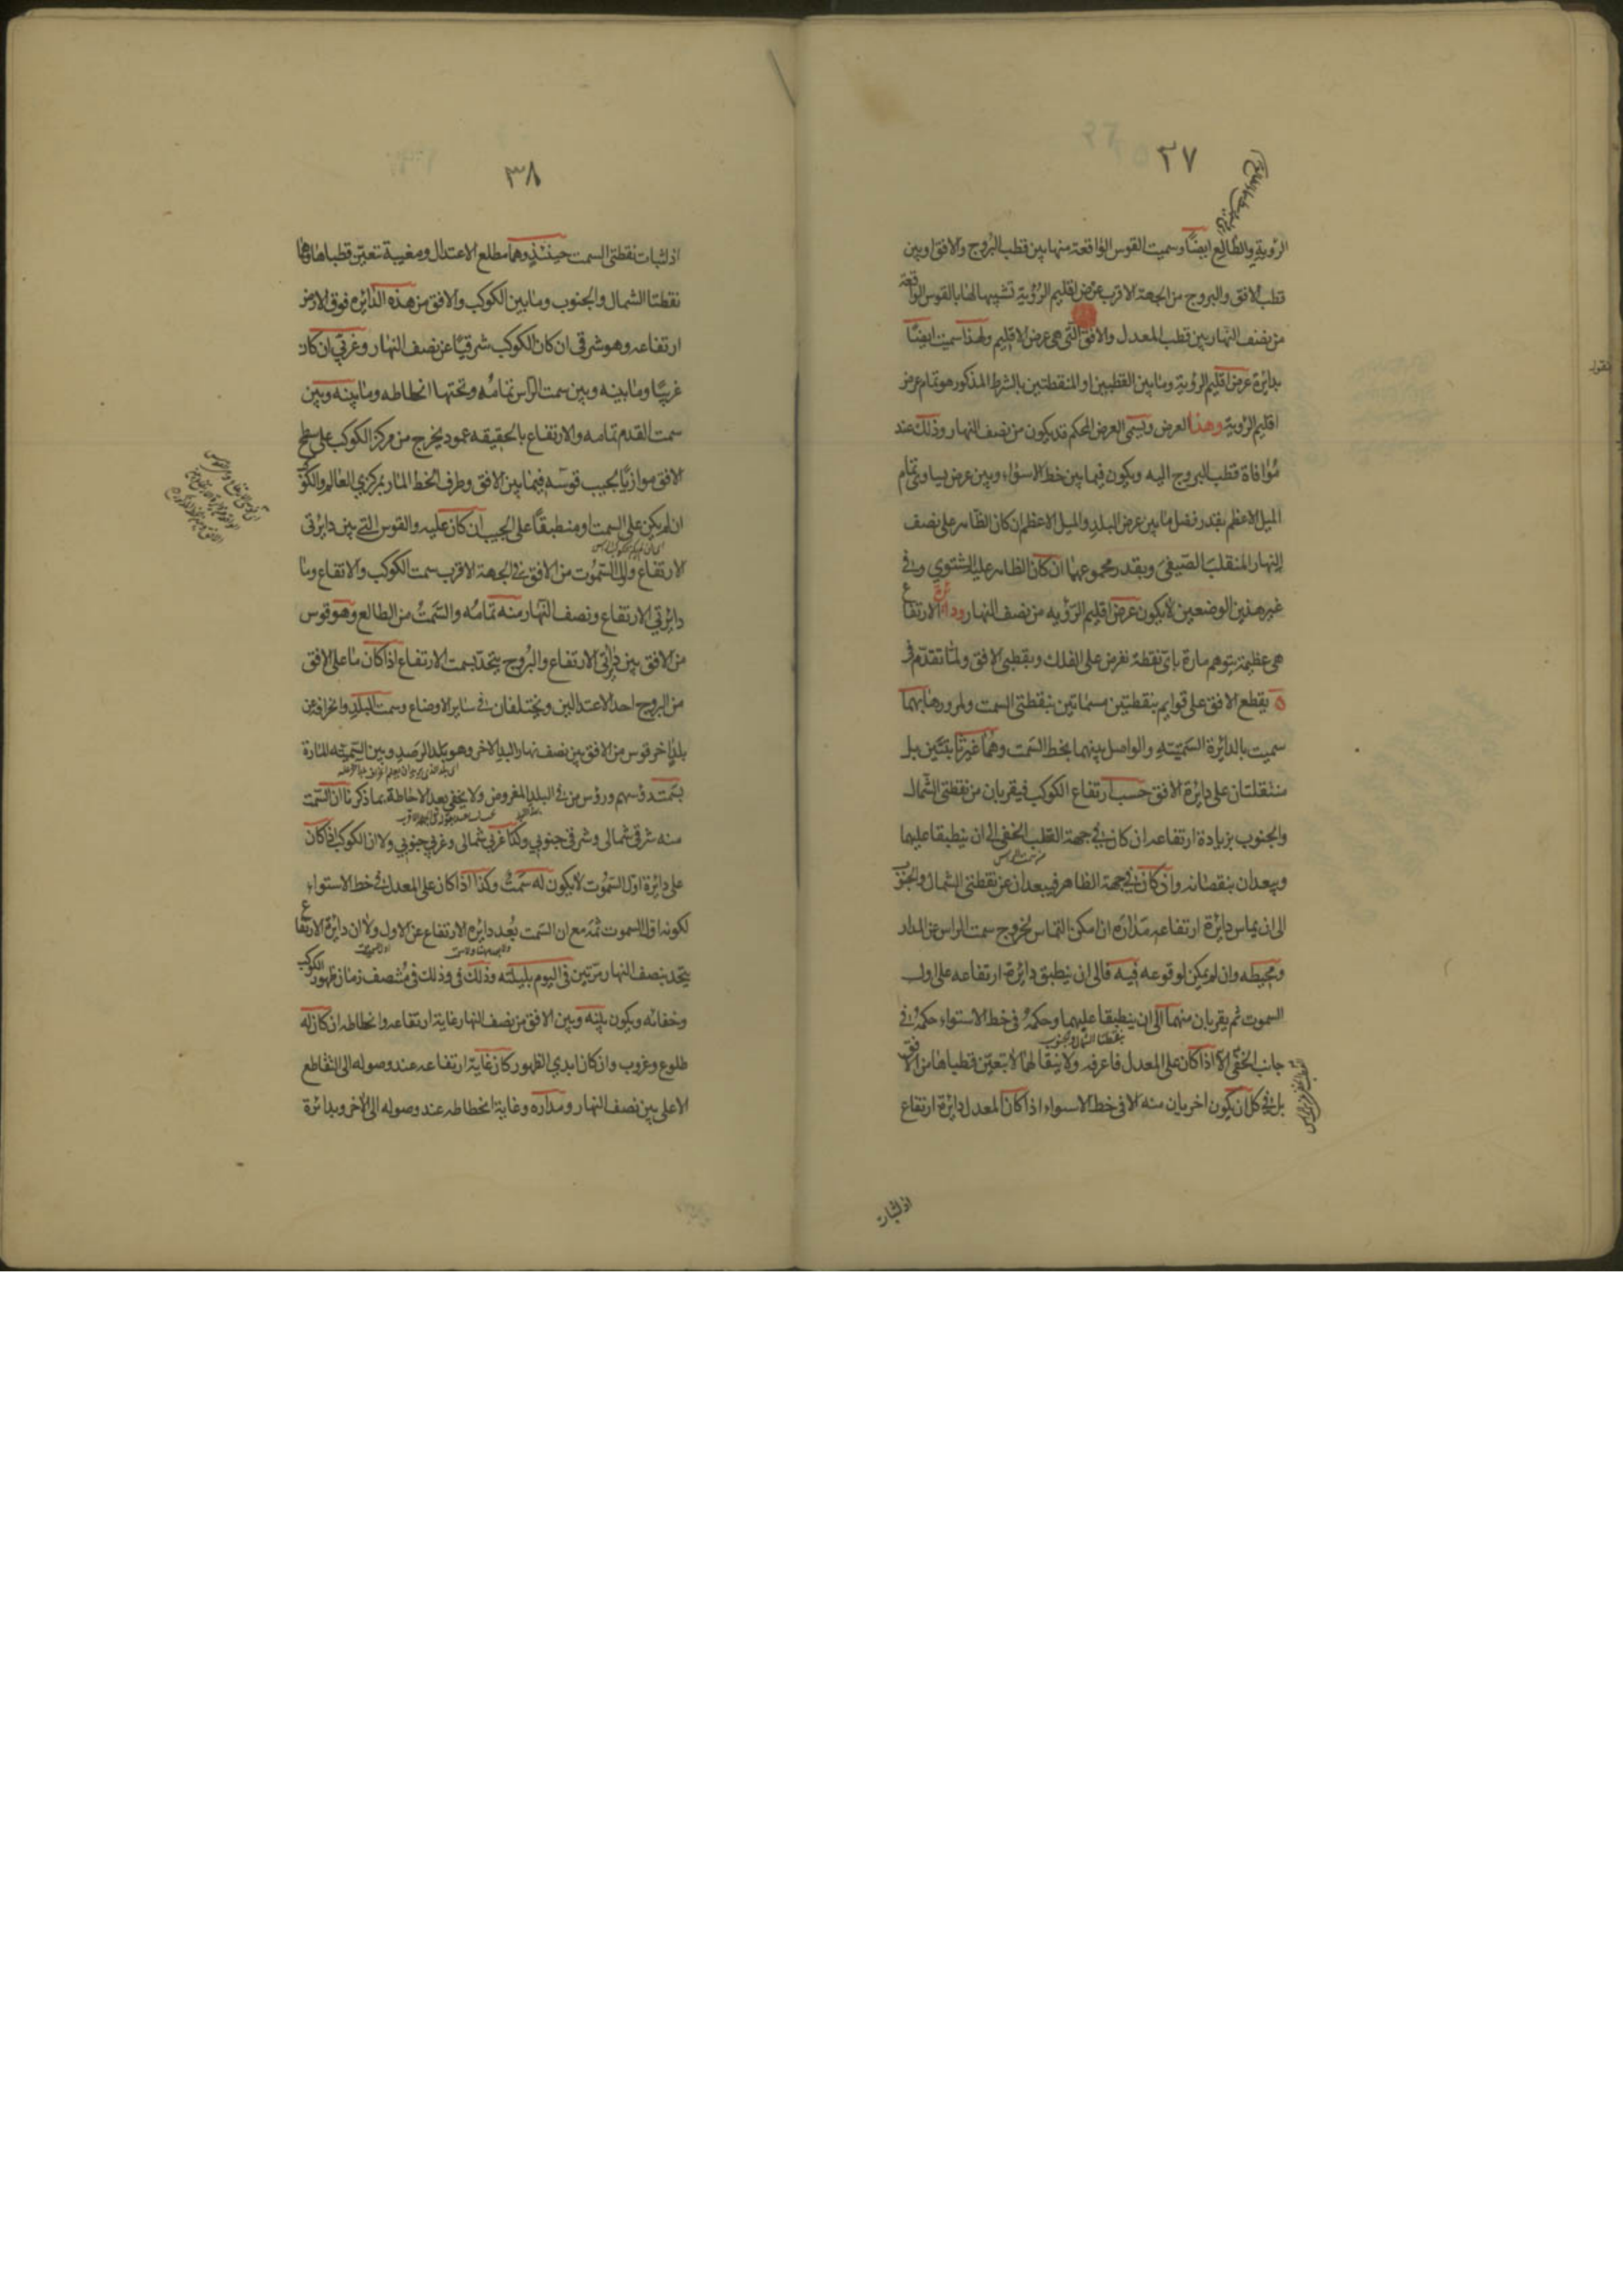 ٢٧
الرؤية والطالع ايضًا وسميت القوس الواقعة منها بين قطب البروج والافق او بين
قطب الافق والبروج من الجهة الاقرب عرض اقليم الرؤية تشبيها لها بالقوس الواقعة
من نصف النهار بين قطب المعدل والافق التى هى عرض الاقليم ولهذا سميت ايضًا
بدايرة عرض اقليم الروية وما بين القطبين او المنقطتين بالشرط المذكور هو تمام عرض
اقليم الرؤية وهذا العرض ويسمى العرض المحكم قد يكون من نصف النهار وذلك عند
مُوافاة قطب البروج اليه ويكون فيما بين خط الاستواء وبين عرض يساوى تمام
الميل الاعظم بقدر فضل ما بين عرض البلد والميل الاعظم ان كان الظاهر على نصف
النهار المنقلب الصيفى وبقدر مجموعهما ان كان الظاهر عليه الشتوي وفى
غير هذين الوضعين لا يكون عرض اقليم الرؤيه من نصف النهار ودائرة الارتفاع
هى عظيمة يتوهم مارة باى نقطة نفرض على الفلك وبقطبى الافق ولما تقدم فى
ه يقطع الافق على قوايم بنقطتين مسماتين بنقطتى السمت ولمرورها بهما
سميت بالدائرة السمتيه والواصل بينهما بخط السمت وهما غير ثابتتين بل
منتقلتان على دايرة الافق حسب ارتفاع الكوكب فيقربان من نقطتى الشمال
والجنوب بزيادة ارتفاعه ان كان فى جهة القطب الخفى الى ان ينطبقا عليهما
ويبعدان بنقصانه وان كان فى جهة الظاهر فيبعدان عن نقطتى الشمال والجنوب
الى ان يماس دايرة ارتفاعه مداره ان امكن التماس لخروج سمت الراس عن المدار
ومحيطه وان لم يمكن لوقوعه فيه فالى ان ينطبق دايرة ارتفاعه على اول
السموت ثم يقربان منهما الى ان ينطبقا عليهما وحكمه فى خط الاستواء حكمه فى
نقطتا الشمال والجنوب
جانب الخفى الا اذا كان على المعدل فاعرفه ولا نتقالهما لا يتعين قطباها من الافق
بل فى كل ان يكون اخريان منه الا فى خط الاستواء اذا كان المعدل دائرة ارتفاع
اذ لثبات
٣٨
اذ لثبات نقطتى السمت حينئذ وهما مطلع الاعتدال ومغيبة تعين قطباها وهما
نقطتا الشمال والجنوب وما بين الكوكب والافق من هذه الدايره فوق الارض
ارتفاعه وهو شرقى ان كان الكوكب شرقيًا عن نصف النهار وغربى ان كان
غربيًا وما بينه وبين سمت الراس تمامُه وتحتها انحطاطه وما بينه وبين
سمت القدم تمامه والارتفاع بالحقيقه عمود يخرج من مركز الكوكب على سطح
الافق موازيًا لجيب قوسه فيما بين الافق وطرف الخط المار بمركزي العالم والكوكب
ان لم يكن على السمت او منطبقًا على الجيب ان كان عليه والقوس التى بين دايرتى
الارتفاع واول السموت من الافق فى الجهة الاقرب سمت الكوكب والارتفاع وما
دايرتي الارتفاع ونصف النهار منه تمامُه والسمتُ من الطالع وهو قوس
من الافق بين دايرتى الارتفاع والبروج يتحد بسمت الارتفاع اذا كان ما على الافق
من البروج احد الاعتدالين ويختلفان فى ساير الاوضاع وسمت البلد وانحرافه من
بلد اخر قوس من الافق بين نصف نهار البلد الاخر وهو بلد الرصد وبين السمتيه المارة
بسمت رؤسهم ورؤس من فى البلد المفروض ولا يخفى بعد الاحاطة بما ذكرنا ان السمت
منه شرقى شمالى وشرقى جنوبي وكذا غربي شمالى وغربى جنوبي ولا ان الكوكب اذا كان
على دايرة اول السموت لا يكون له سمت وكذا اذا كان على المعدل فى خط الاستواء
لكونه اول السموت ثمه مع ان السمت بُعد دايره الارتفاع عن الاول ولا ان دايرة الارتفاع
يتحد بنصف النهار مرتين فى اليوم بليلته وذلك فى وذلك فى منتصف زمان ظهور الكوكب
وخفائه ويكون بينه وبين الافق من نصف النهار غاية ارتفاعه وانحطاطه ان كان له
طلوع وغروب وان كان ابدي الظهور كان غاية ارتفاعه عند وصوله الى التقاطع
الاعلى بين نصف النهار ومداره وغاية انحطاطه عند وصوله الى الاخر وبدائرة